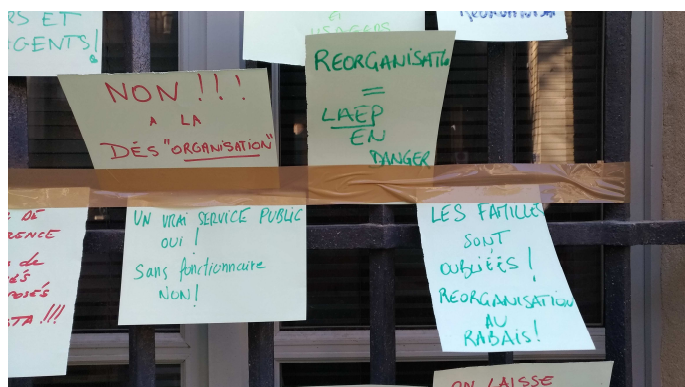 RS ET
AGENTS!
ET
USAGERS
NON!!!
A LA
DÉS "ORGANISATION"
REORGANISATIO
=
LAEP
EN
DANGER
DE
UN VRAI SERVICE PUBLIC
OUI!
Sans fonctionnaire
NON!
LES FAMILLES
SONT
OUBLIÉES!
REORGANISATION
AU
RABAIS!
ON LAISSE